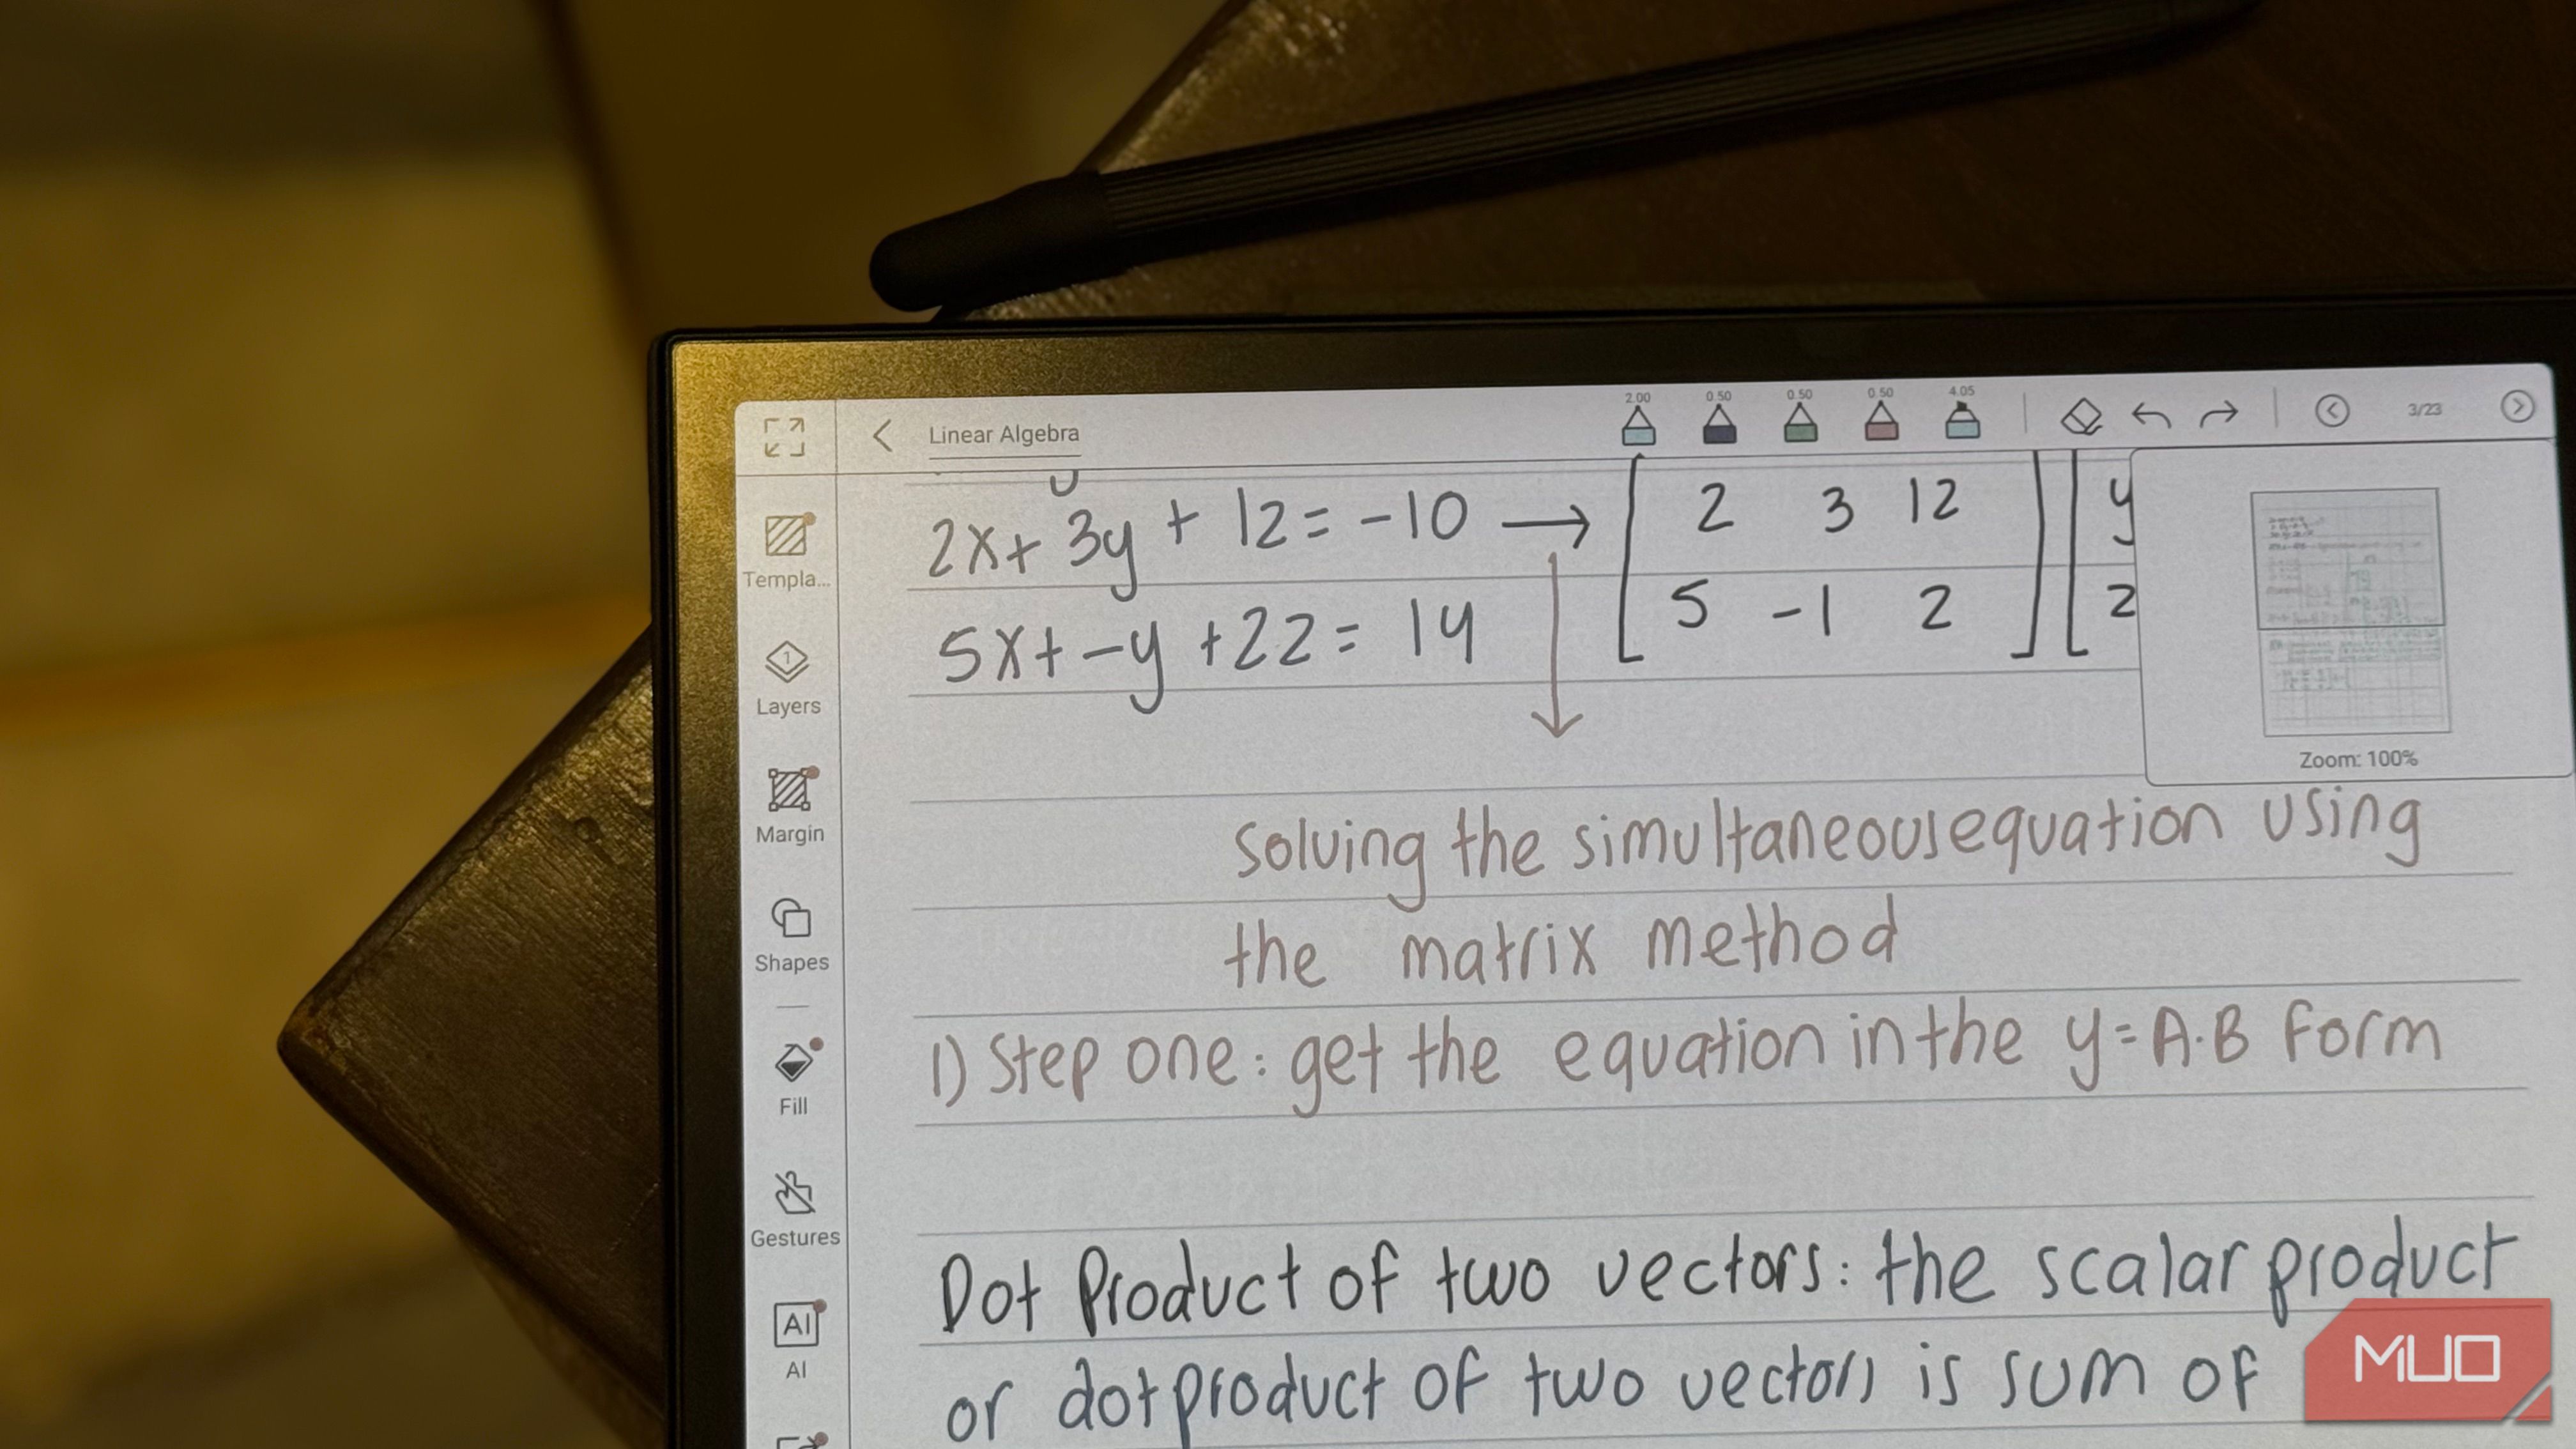 2.00 0.50 0.50 0.50 4.05
Linear Algebra
3/23
2x+ 3y + 12= -10 → [ 2 3 12 ] [ y
5x+ -y +22= 14 [ 5 -1 2 ] [ 2
Templa...
Layers
1
Margin
Shapes
Fill
Gestures
AI
AI
Zoom: 100%
solving the simultaneous equation using
the matrix method
1) Step one: get the equation in the y=A·B form
Dot Product of two vectors: the scalar product
or dot product of two vectors is sum of
MUO